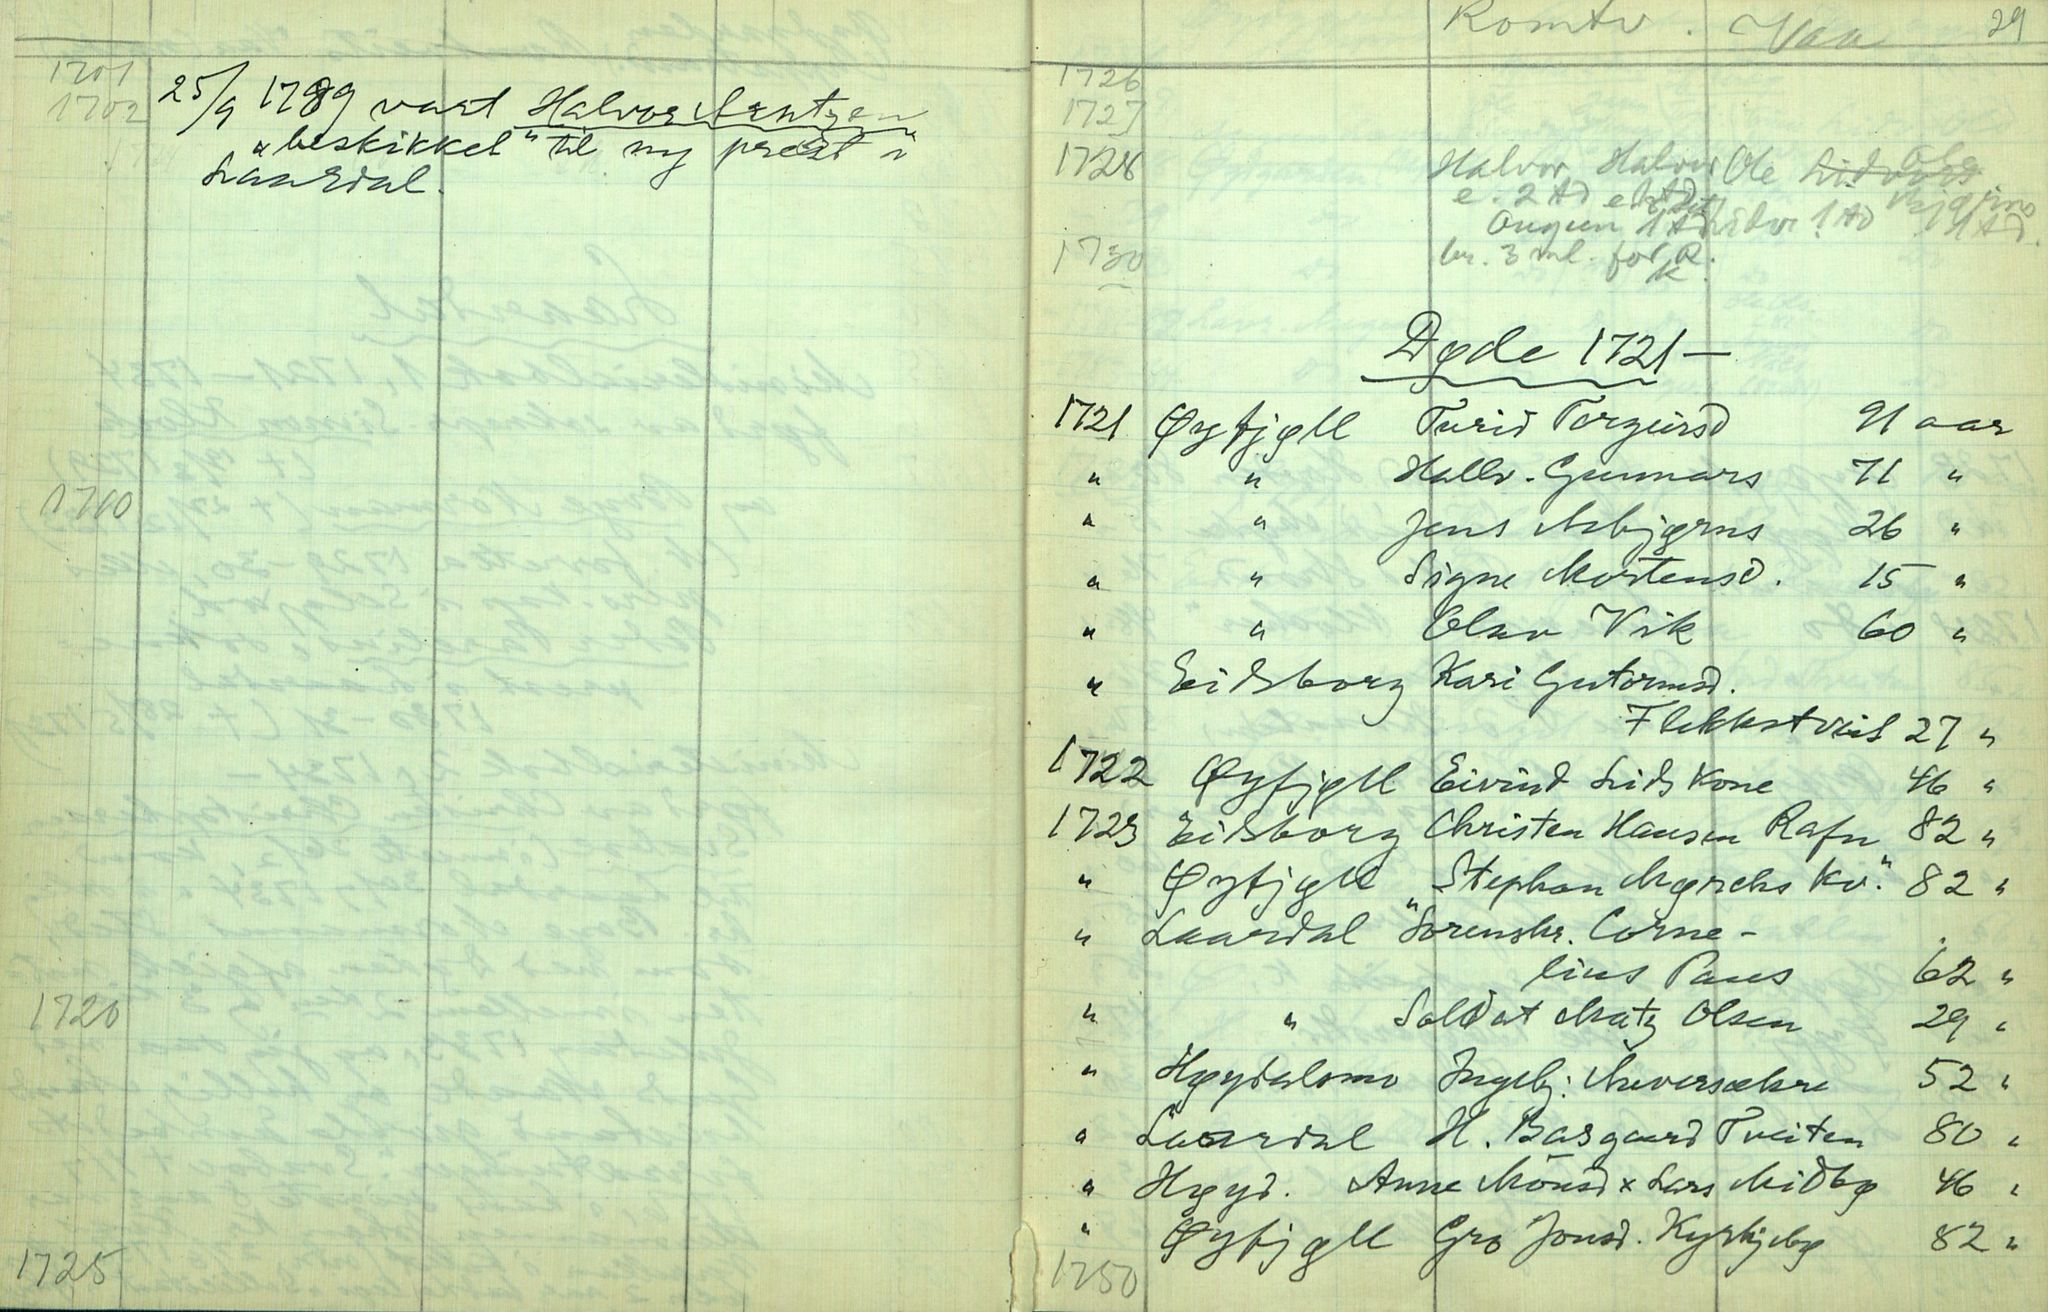 1701
1702
25/9 1789 vart Halvor Arntzen
"beskikket" til ny prest i
Laardal.
1710
1720
1725
Romtv. Vaa 29
1726
1727
1728 Halvor, Halvor Ole
e. 2 Ad
Augun 1 Ad
1730 br. 3 ml. for R.
K.
Døde 1721—
1721 Øyfjøll Turid Torgeirsd 91 aar
" " Hallv. Gunnars 71 "
" " Jens Asbjørns 26 "
" " Signe Mortensd. 15 "
" " Olav Vik 60 "
" Eidsborg Kari Gutormsd.
Flekkstveit 27 "
1722 Øyfjøll Eivind Lids Kone 46 "
1723 Eidsborg Christen Hansen Rafn 82 "
" Øyfjøll "Stephan Mørchs Kv." 82 "
" Laardal "Sorenskr. Corne-
lius Paus 62 "
" " Soldat Matz Olsen 29 "
" Høydalsmo Ingebj. 52 "
" Laardal H. Basgaard Tveiten 80 "
" Høyd. Anne Mōnsd x Lars Midbø 46 "
" Øyfjøll Gro Jonsd. Kyrkjebø 82 "
1750